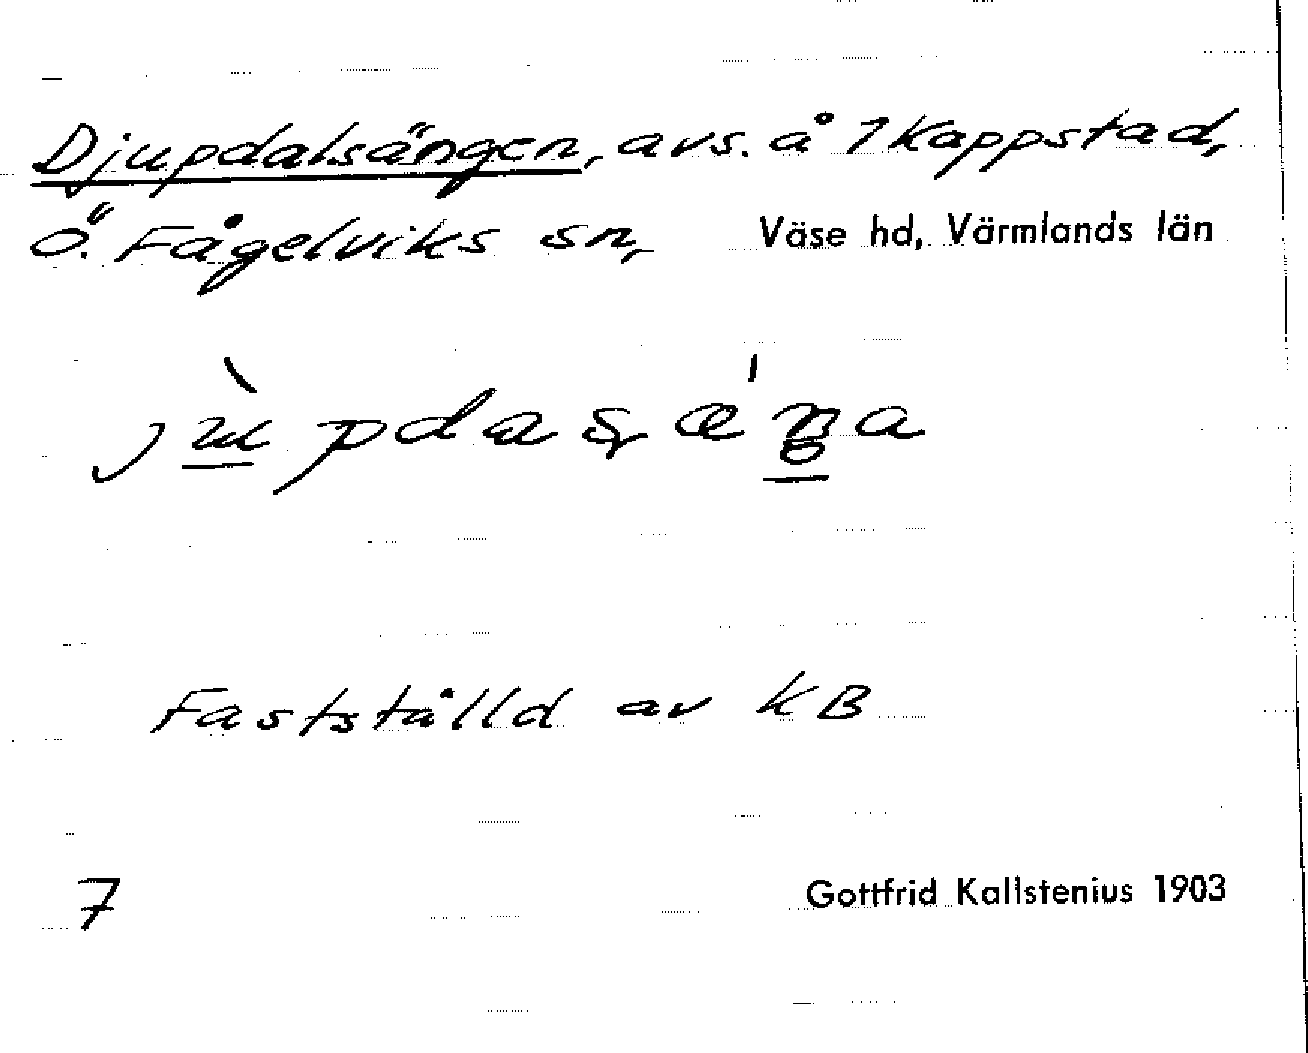 Djupdalsängen, avs. å 1 Kappstad,
Ö. Fågelviks sn, Väse hd, Värmlands län
Fastställd av KB
7 Gottfrid Kallstenius 1903